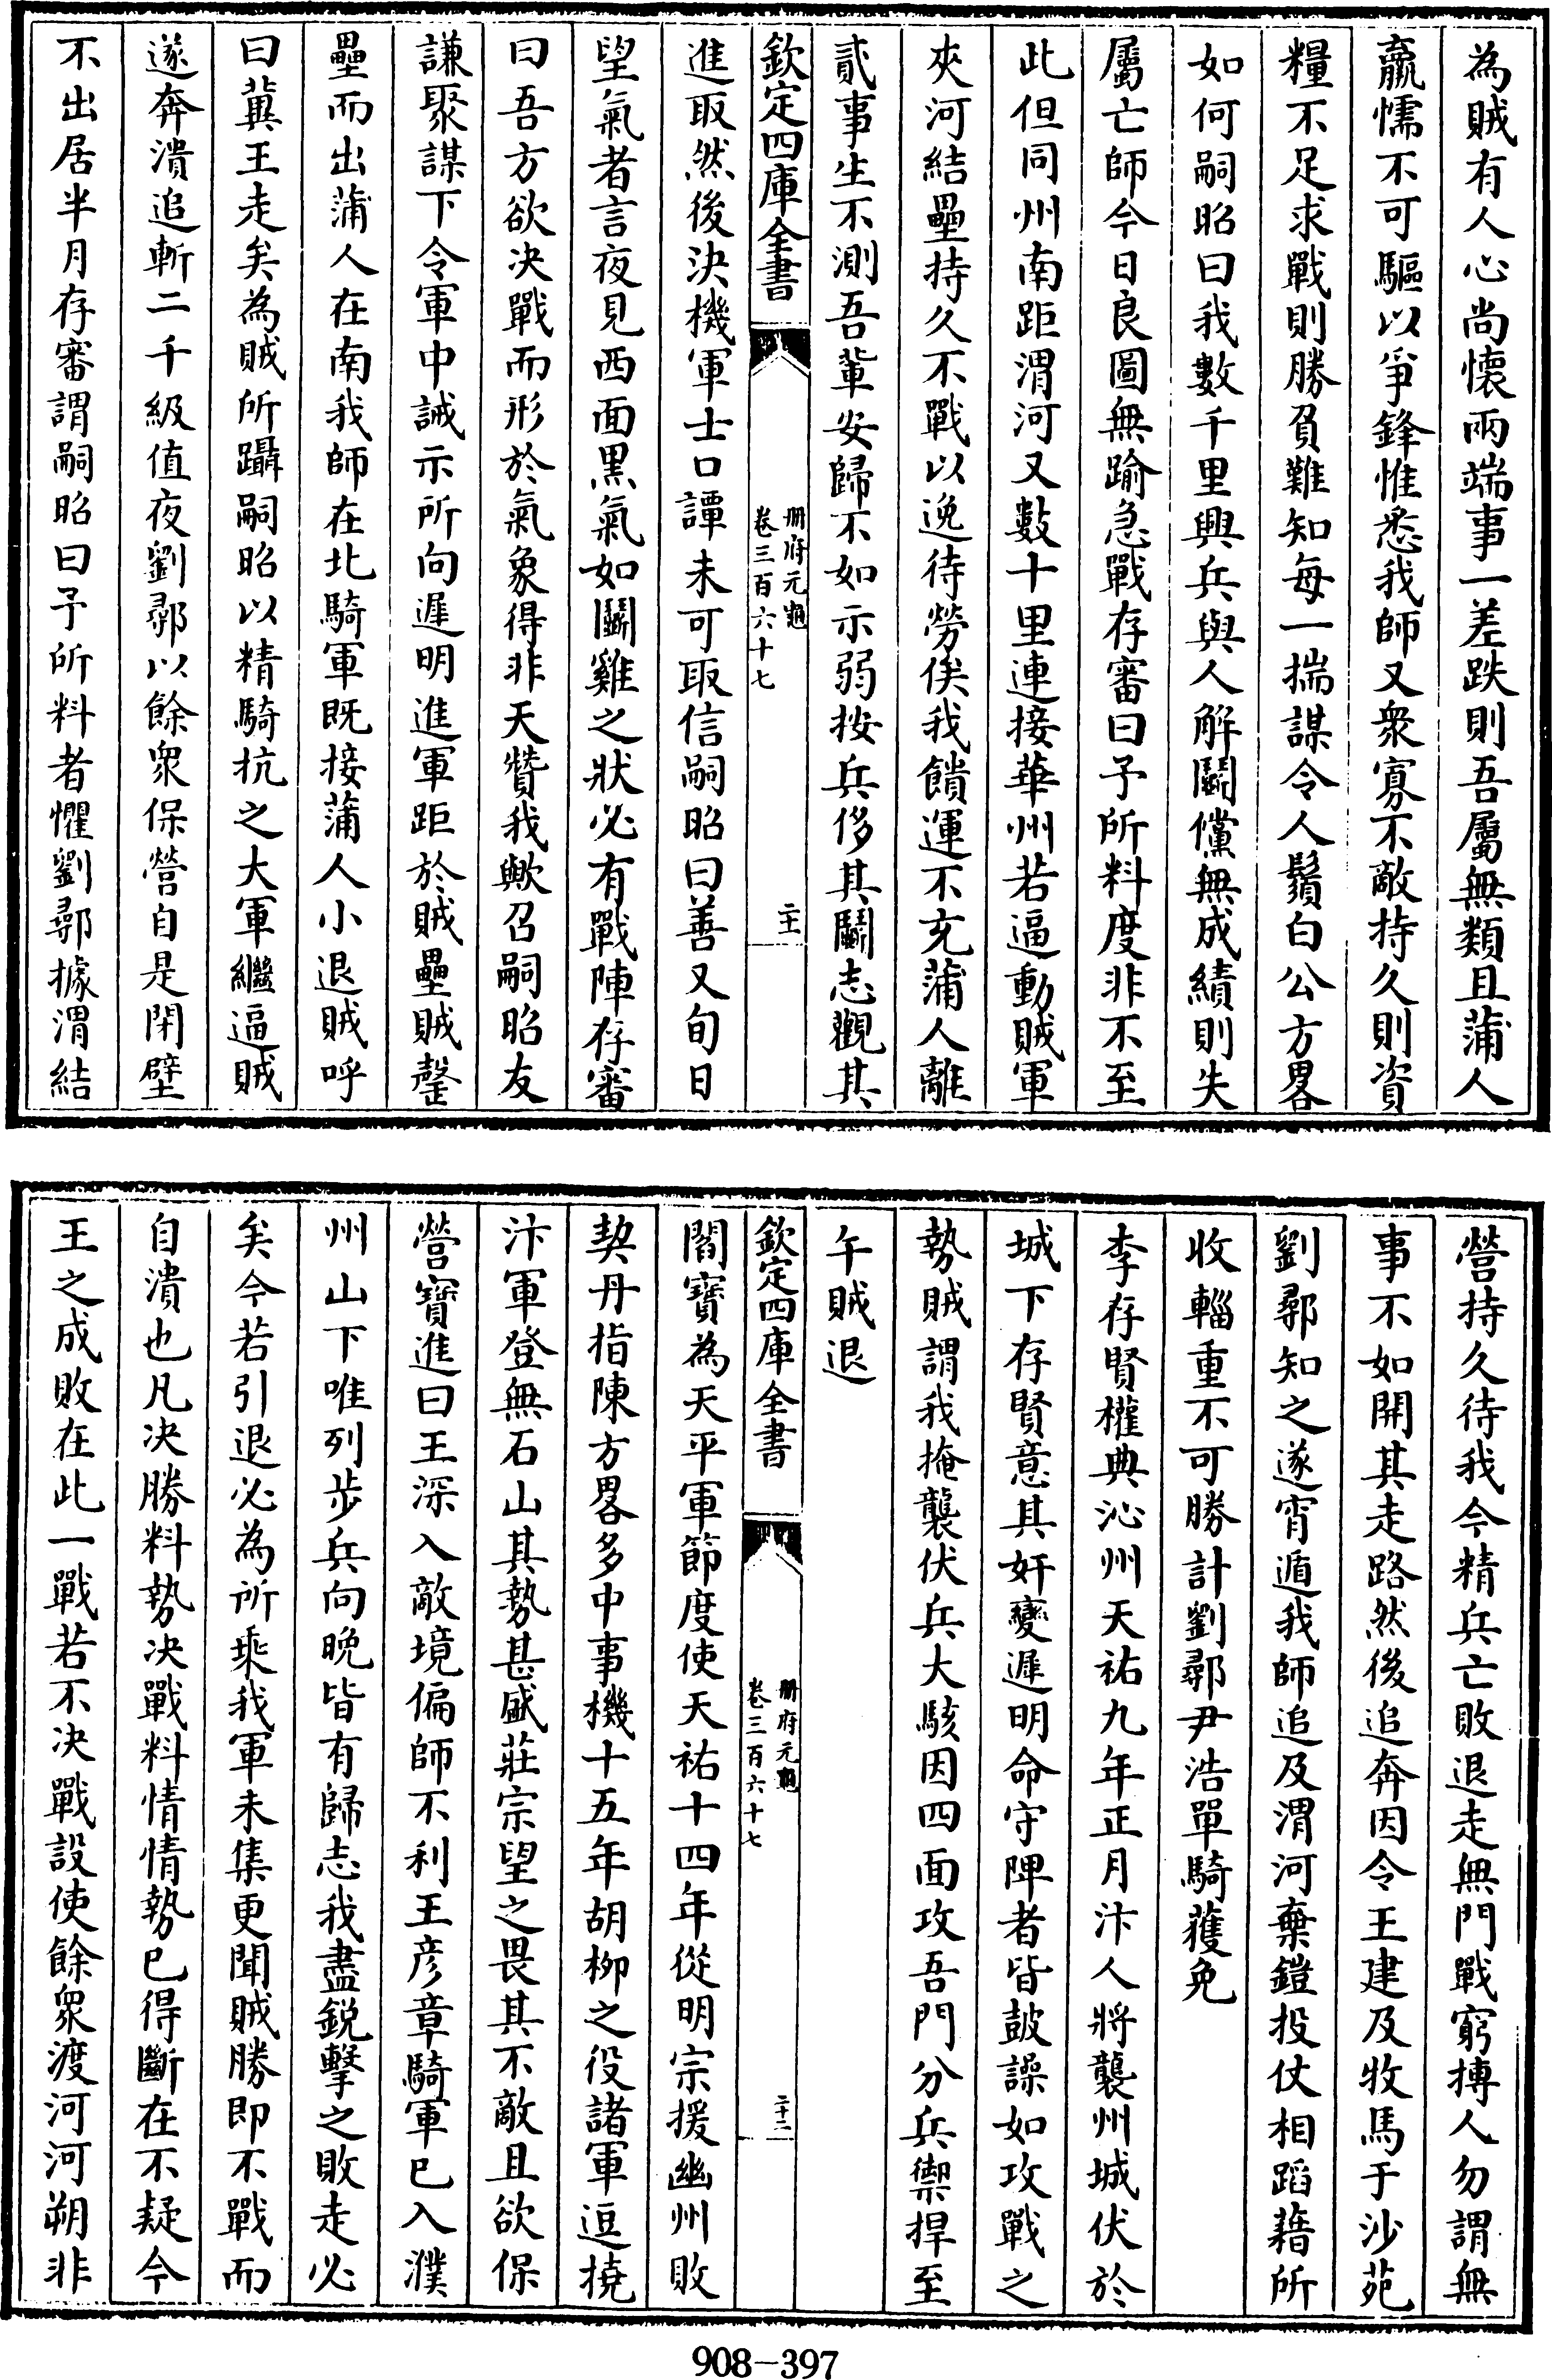 為賊有人心尚懷兩端事一差跌則吾屬無類且蒲人
羸懦不可驅以爭鋒惟悉我師又衆寡不敵持久則資
糧不足求戰則勝負難知每一揣謀令人鬚白公方畧
如何嗣昭曰我數千里興兵與人解鬭儻無成績則失
屬亡師今日良圖無踰急戰存審曰予所料度非不至
此但同州南距渭河又數十里連接華州若逼動賊軍
夾河結壘持久不戰以逸待勞俟我饋運不充蒲人離
貳事生不測吾軰安歸不如示弱按兵侈其鬭志觀其
欽定四庫全書
册府元龜
卷三百六十七
二十一
進取然後決機軍士口譚未可取信嗣昭曰善又旬日
望氣者言夜見西面黒氣如鬭雞之狀必有戰陣存審
曰吾方欲决戰而形於氣象得非天贊我歟召嗣昭友
謙聚謀下令軍中誡示所向遲明進軍距於賊壘賊罄
壘而出蒲人在南我師在北騎軍既接蒲人小退賊呼
曰冀王走矣為賊所躡嗣昭以精騎抗之大軍繼逼賊
遂奔潰追斬二千級值夜劉鄩以餘衆保營自是閉壁
不出居半月存審謂嗣昭曰予所料者懼劉鄩據渭結
營持久待我今精兵亡敗退走無門戰窮搏人勿謂無
事不如開其走路然後追奔因令王建及牧馬于沙苑
劉鄩知之遂宵遁我師追及渭河棄鎧投仗相蹈藉所
收輜重不可勝計劉鄩尹浩單騎獲免
李存賢權典沁州天祐九年正月汴人將襲州城伏於
城下存賢意其奸變遲明命守陴者皆鼓譟如攻戰之
勢賊謂我掩襲伏兵大駭因四面攻吾門分兵禦捍至
午賊退
欽定四庫全書
册府元龜
卷三百六十七
二十二
閻寶為天平軍節度使天祐十四年從明宗援幽州敗
契丹指陳方畧多中事機十五年胡柳之役諸軍逗撓
汴軍登無石山其勢甚盛莊宗望之畏其不敵且欲保
營寶進曰王深入敵境偏師不利王彦章騎軍已入濮
州山下唯列步兵向晚皆有歸志我盡鋭擊之敗走必
矣今若引退必為所乘我軍未集更聞賊勝即不戰而
自潰也凡决勝料勢决戰料情情勢已得斷在不疑今
王之成敗在此一戰若不决戰設使餘衆渡河河朔非
908-397